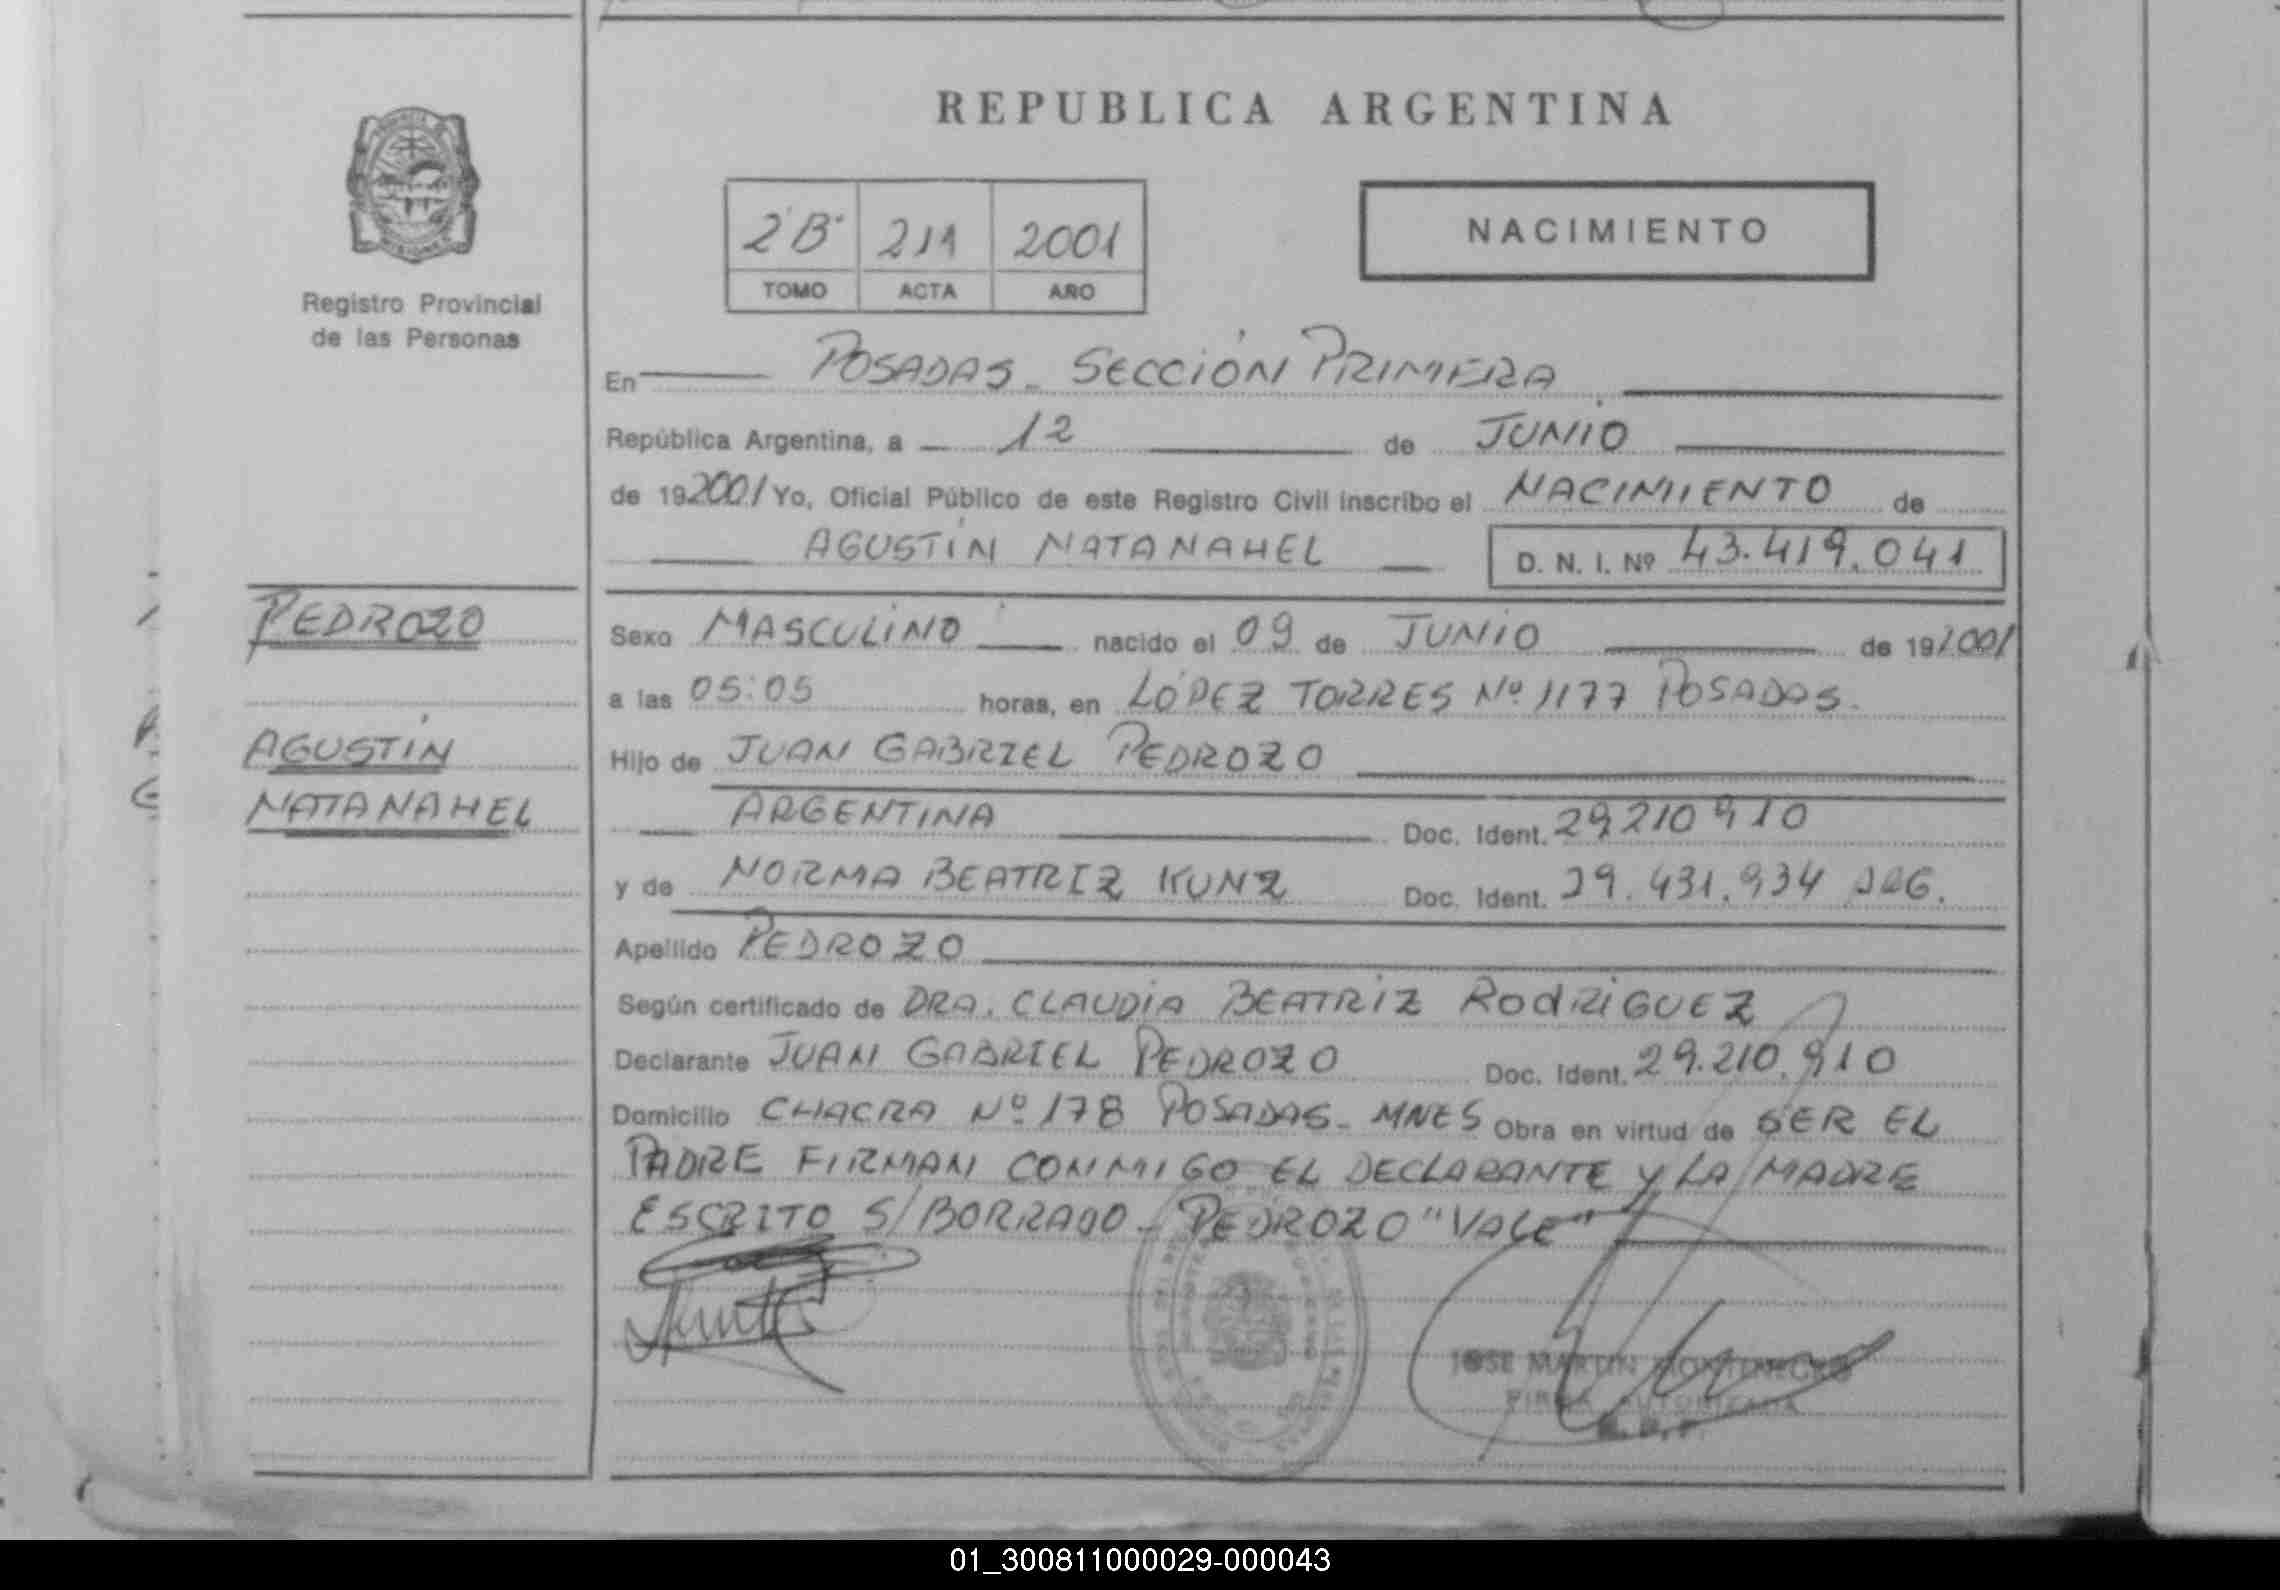 REPUBLICA ARGENTINA
Registro Provincial
de las Personas
2B 211 2001
TOMO ACTA AÑO
NACIMIENTO
En POSADAS - SECCIÓN PRIMERA
República Argentina, a 12 de JUNIO
de 192001 Yo, Oficial Público de este Registro Civil inscribo el NACIMIENTO de
AGUSTÍN NATANAHEL D. N. I. Nº 43.419.041
PEDROZO
AGUSTÍN
NATANAHEL
Sexo MASCULINO nacido el 09 de JUNIO de 192001
a las 05:05 horas, en LÓPEZ TORRES Nº 1177 POSADAS.
Hijo de JUAN GABRIEL PEDROZO
ARGENTINA Doc. Ident. 29.210.910
y de NORMA BEATRIZ KUNZ Doc. Ident. 29.431.934 ARG.
Apellido PEDROZO
Según certificado de DRA. CLAUDIA BEATRIZ RODRIGUEZ
Declarante JUAN GABRIEL PEDROZO Doc. Ident. 29.210.910
Domicilio CHACRA Nº 178 POSADAS - MNES Obra en virtud de SER EL
PADRE FIRMAN CONMIGO EL DECLARANTE Y LA MADRE
ESCRITO S/BORRADO - PEDROZO "VALE"
JOSE MARTIN MONTENEGRO
FIRMA AUTORIZADA
01_300811000029-000043